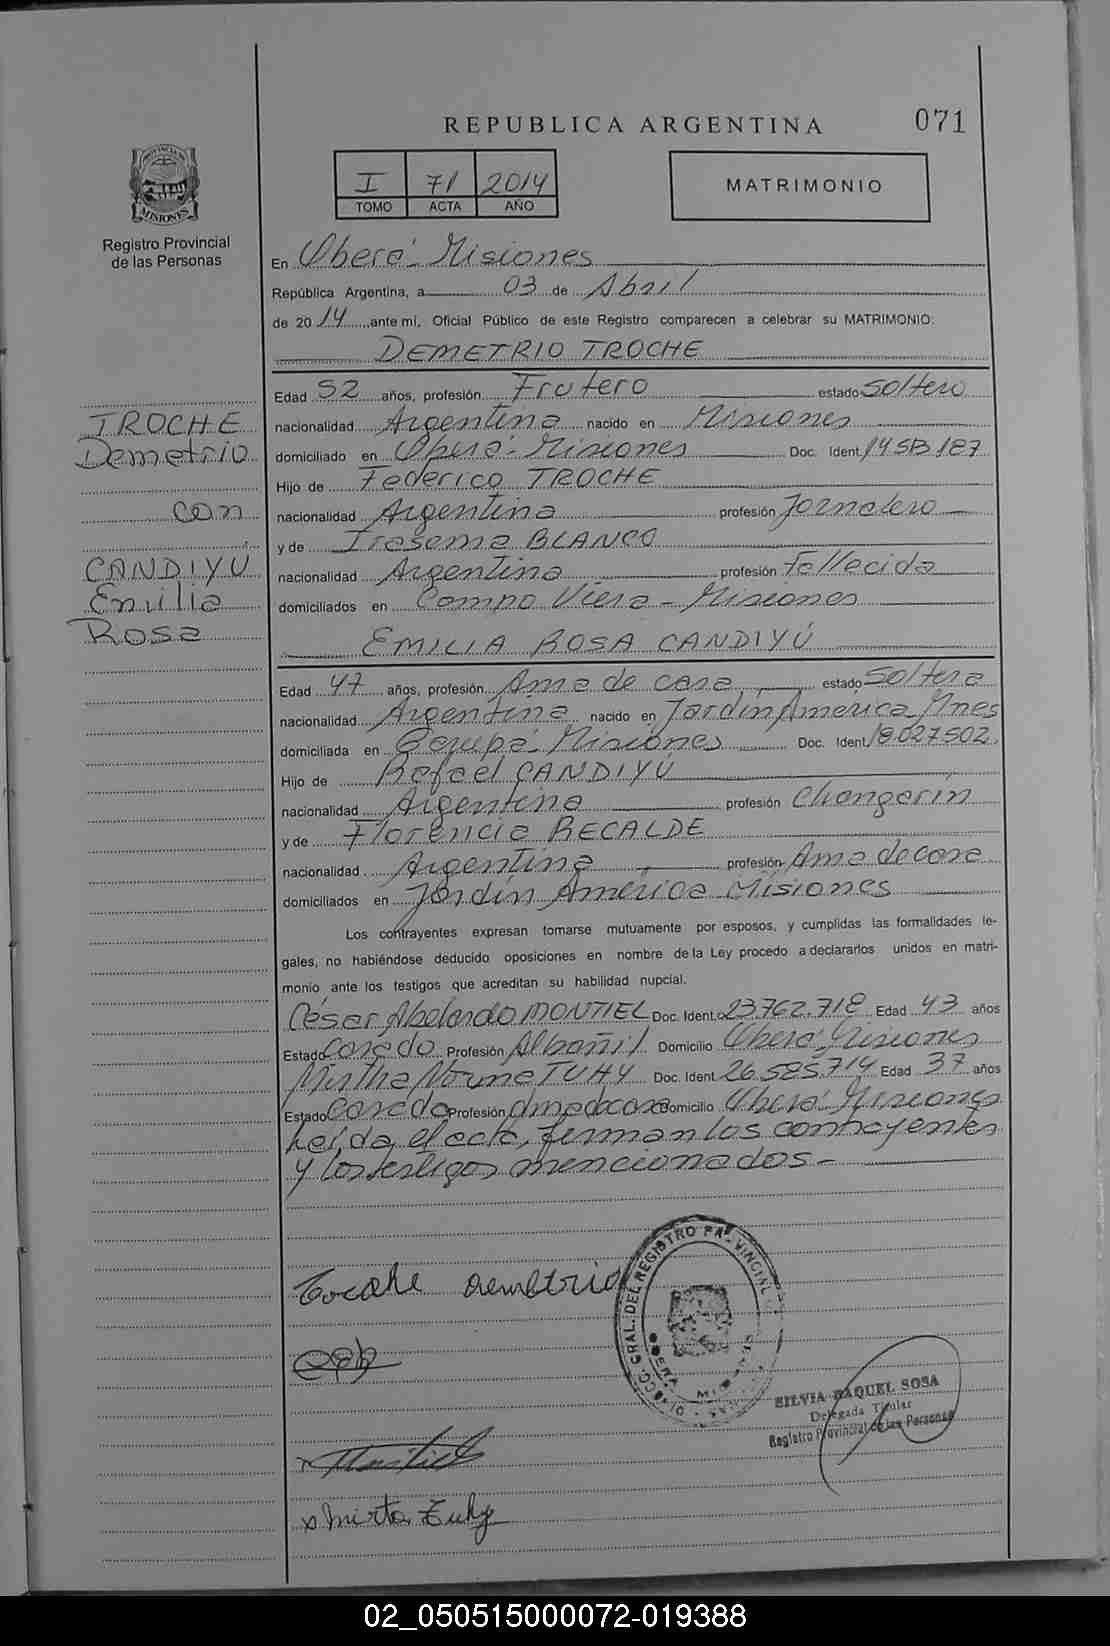 071
REPUBLICA ARGENTINA
I 71 2014
TOMO ACTA AÑO
MATRIMONIO
PROVINCIA DE
MISIONES
Registro Provincial
de las Personas
En Oberá - Misiones
República Argentina, a 03 de Abril
de 2014 ante mí, Oficial Público de este Registro comparecen a celebrar su MATRIMONIO:
DEMETRIO TROCHE
TROCHE
Demetrio
con
CANDIYÚ
Emilia
Rosa
Edad 52 años, profesión Frutero estado soltero
nacionalidad Argentina nacido en Misiones
domiciliado en Oberá - Misiones Doc. Ident
Hijo de Federico TROCHE
nacionalidad Argentina profesión Jornalero
y de Irasema BLANCO
nacionalidad Argentina profesión Fallecida
domiciliados en Campo Viera - Misiones
EMILIA ROSA CANDIYÚ
Edad 47 años, profesión Ama de casa estado Soltera
nacionalidad Argentina nacido en Jardín América Mnes
domiciliada en Misiones Doc. Ident 18.027.502
Hijo de Rafael CANDIYÚ
nacionalidad Argentina profesión Changarín
y de Florencia RECALDE
nacionalidad Argentina profesión Ama de casa
domiciliados en Jardín América Misiones
Los contrayentes expresan tomarse mutuamente por esposos, y cumplidas las formalidades le-
gales, no habiéndose deducido oposiciones en nombre de la Ley procedo a declararlos unidos en matri-
monio ante los testigos que acreditan su habilidad nupcial.
César Abelardo MONTIEL Doc. Ident. 23.762.718 Edad 43 años
Estado Casado Profesión Albañil Domicilio Oberá Misiones
Mirtha Norma TUHY Doc. Ident 26.585.714 Edad 37 años
Estado Casada Profesión Ama de casa Domicilio Oberá Misiones
Leída el acta, firman los contrayentes
y los testigos mencionados.-
Troche Demetrio
Mirta Tuhy
GRAL. DEL REGISTRO PROVINCIAL
SILVIA RAQUEL SOSA
Delegada Titular
Registro Provincial de las Personas
02_050515000072-019388